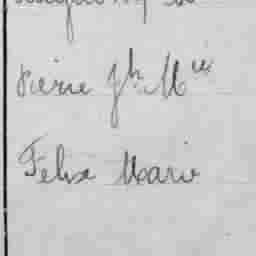 Pierre Jh Mie
Felix Marie